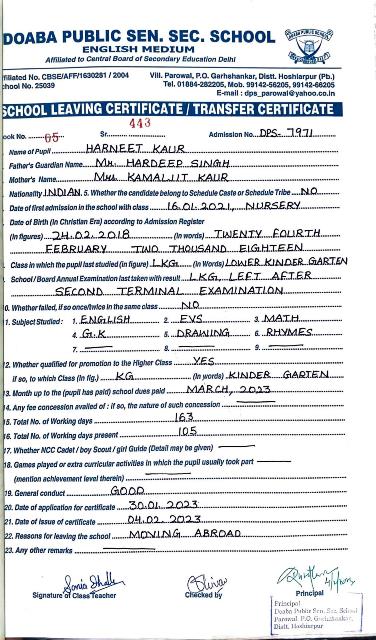 DOABA PUBLIC SEN. SEC. SCHOOL
ENGLISH MEDIUM
Affiliated to Central Board of Secondary Education Delhi
ffiliated No. CBSE/AFF/1630281 / 2004 Vill. Parowal, P.O. Garhshankar, Distt. Hoshiarpur (Pb.)
chool No. 25039 Tel. 01884-282205, Mob. 99142-56205, 99142-66205
E-mail : dps_parowal@yahoo.co.in
SCHOOL LEAVING CERTIFICATE / TRANSFER CERTIFICATE
ook No. 05 Sr. 443 Admission No. DPS-7971
Name of Pupil HARNEET KAUR
Father's Guardian Name MR. HARDEEP SINGH
Mother's Name MRS. KAMALJIT KAUR
Nationality INDIAN 5. Whether the candidate belong to Schedule Caste or Schedule Tribe NO
Date of first admission in the school with class 16.01.2021, NURSERY
Date of Birth (In Christian Era) according to Admission Register
(In figures) 24.02.2018 (In words) TWENTY FOURTH
FEBRUARY TWO THOUSAND EIGHTEEN
Class in which the pupil last studied (in figure) LKG (In Words) LOWER KINDER GARTEN
School/Board Annual Examination last taken with result LKG, LEFT AFTER
SECOND TERMINAL EXAMINATION
10. Whether failed, if so once/twice in the same class NO
11. Subject Studied : 1. ENGLISH 2. EVS 3. MATH
4. G.K 5. DRAWING 6. RHYMES
7. 8. 9.
12. Whether qualified for promotion to the Higher Class YES
if so, to which Class (In fig.) KG (In words) KINDER GARTEN
13. Month up to the (pupil has paid) school dues paid MARCH, 2023
14. Any fee concession availed of : if so, the nature of such concession
15. Total No. of Working days 163
16. Total No. of Working days present 105
17. Whether NCC Cadet / boy Scout / girl Guide (Detail may be given)
18. Games played or extra curricular activities in which the pupil usually took part
(mention achievement level therein)
19. General conduct GOOD
20. Date of application for certificate 30.01.2023
21. Date of issue of certificate 04.02.2023
22. Reasons for leaving the school MOVING ABROAD
23. Any other remarks
Signature of Class Teacher Checked by Principal
Principal
Doaba Public Sen. Sec. School
Parowal, P.O. Garhshankar,
Distt. Hoshiarpur